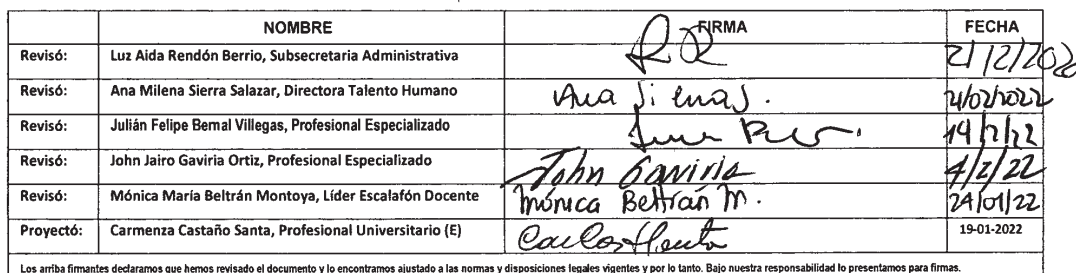 NOMBRE FIRMA FECHA
Revisó: Luz Aida Rendón Berrio, Subsecretaria Administrativa
Revisó: Ana Milena Sierra Salazar, Directora Talento Humano Ana Sierra S. 21/02/2022
Revisó: Julián Felipe Bernal Villegas, Profesional Especializado 14/2/22
Revisó: John Jairo Gaviria Ortiz, Profesional Especializado John Gaviria 4/2/22
Revisó: Mónica María Beltrán Montoya, Líder Escalafón Docente Mónica Beltrán M. 24/01/22
Proyectó: Carmenza Castaño Santa, Profesional Universitario (E) 19-01-2022
Los arriba firmantes declaramos que hemos revisado el documento y lo encontramos ajustado a las normas y disposiciones legales vigentes y por lo tanto. Bajo nuestra responsabilidad lo presentamos para firmas.